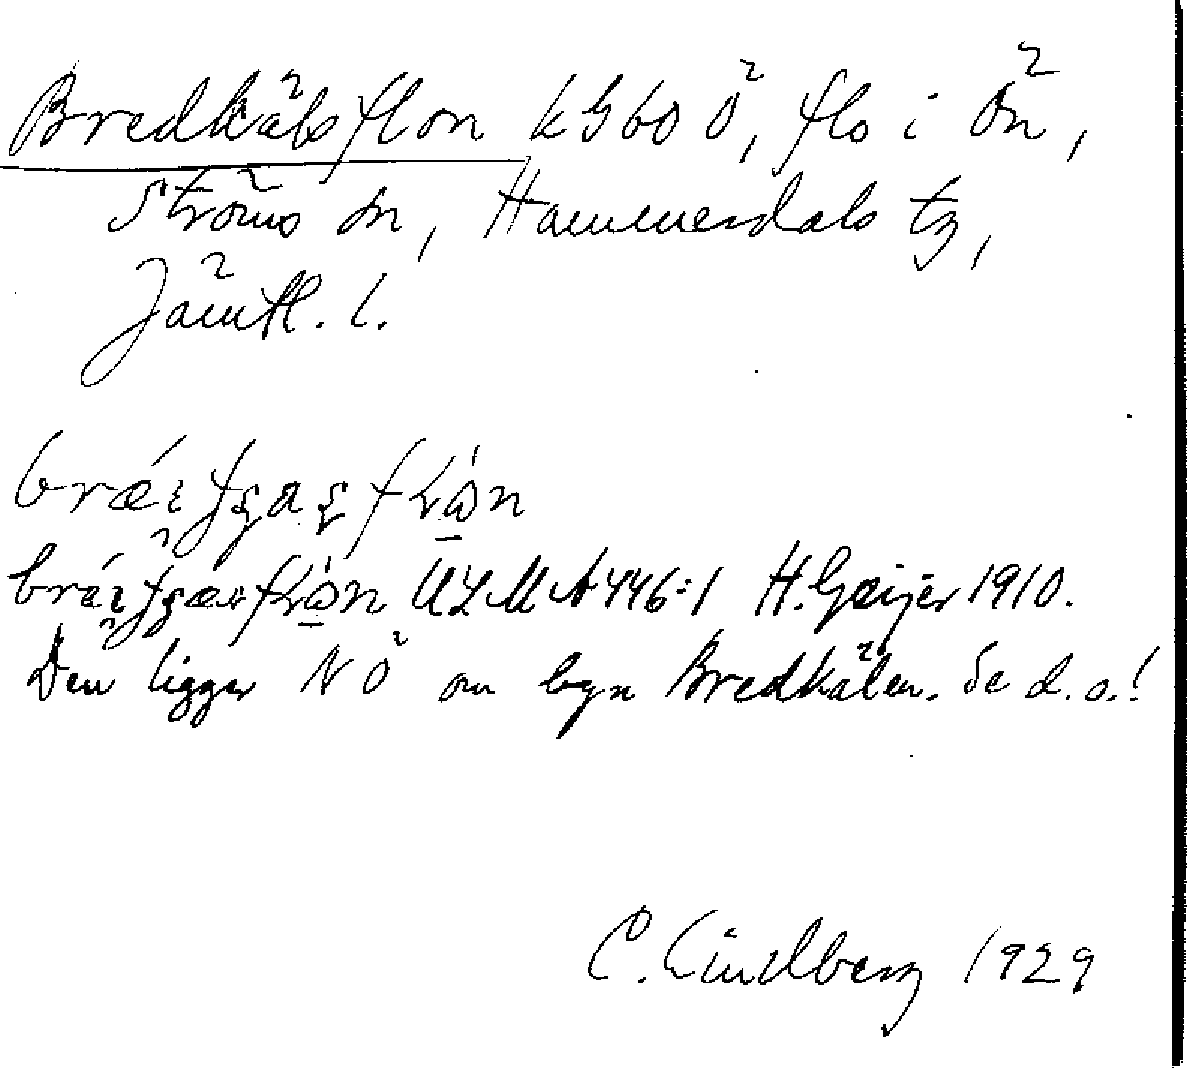 Bredkälsflon k G 60 Ö, flo i Ön,
Ströms sn, Hammerdals tg,
Jämtl. l.
ULMA 446:1 H. Geijer 1910.
Den ligger NÖ om byn Bredkälen. Se d.o.!
C. Lindberg 1929